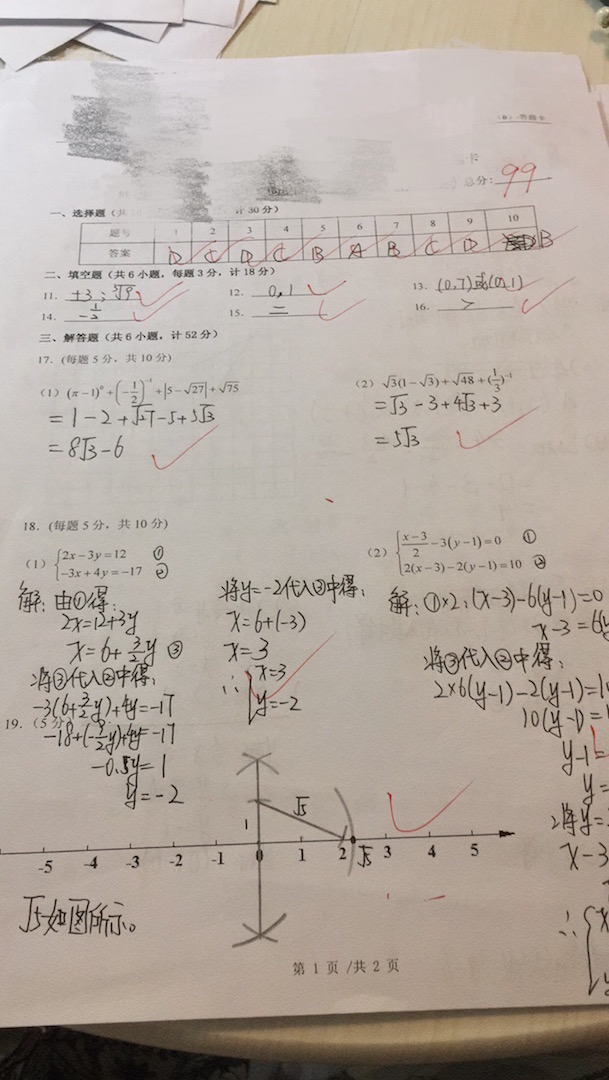 (B) 答题卡
卡
总分: 99
一、选择题（共 计30分）
题号 1 2 3 4 5 6 7 8 9 10
答案 D C D C B A B C D B
二、填空题（共6小题，每题3分，计18分）
11. ±3；∛9 12. 0,1 13. (0,7)或(0,1)
14. -1/2 15. 二 16. >
三、解答题（共6小题，计52分）
17.(每题5分，共10分)
（1）(π-1)⁰+(-1/2)⁻¹+|5-√27|+√75
=1-2+√27-5+5√3
=8√3-6
（2）√3(1-√3)+√48+(1/3)⁻¹
=√3-3+4√3+3
=5√3
18.(每题5分，共10分)
（1）{2x-3y=12 ①
-3x+4y=-17 ②
解：由①得：
2x=12+3y
x=6+3/2y ③
将③代入②中得：
-3(6+3/2y)+4y=-17
-18+(-9/2y)+4y=-17
-0.5y=1
y=-2
将y=-2代入③中得：
x=6+(-3)
x=3
∴{x=3
y=-2
（2）{(x-3)/2-3(y-1)=0 ①
2(x-3)-2(y-1)=10 ②
解：①×2：(x-3)-6(y-1)=0
x-3=6(y
将③代入②中得：
2×6(y-1)-2(y-1)=1
10(y-1)=
y-1=
y=
将y=
x-3
∴{x
y
19.(5分
√5
1
-5 -4 -3 -2 -1 0 1 2 √5 3 4 5
√5如图所示。
第 1 页 /共 2 页